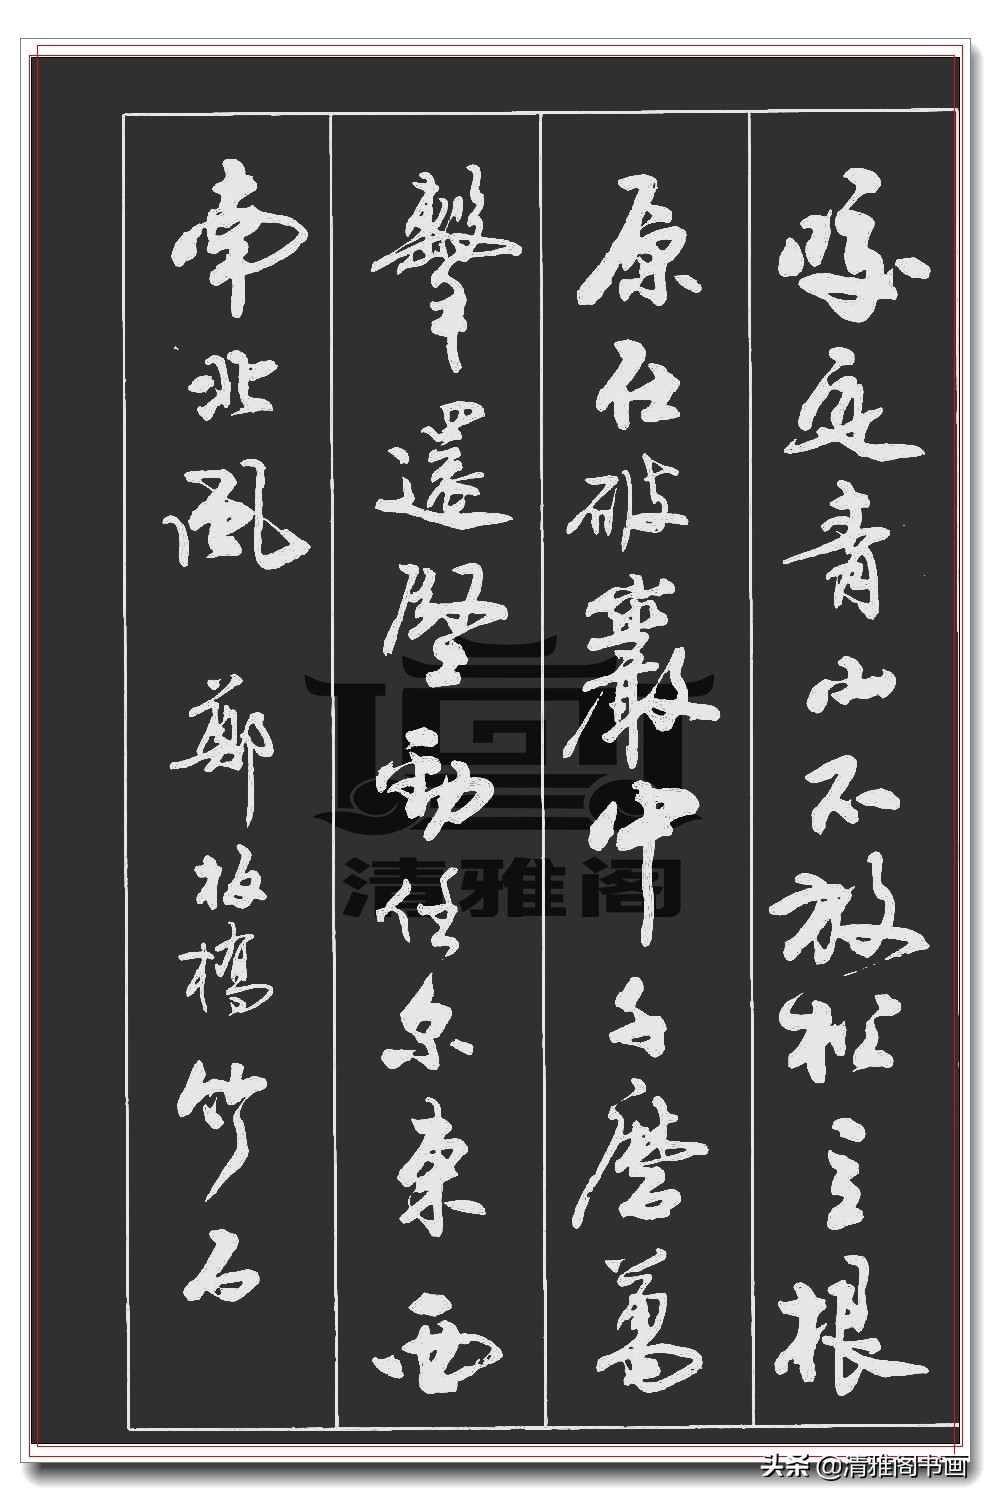 咬定青山不放松立根
原在破巖中千磨萬
擊還堅勁任尔東西
南北風 鄭板橋 竹石
清雅阁
头条 @清雅阁书画